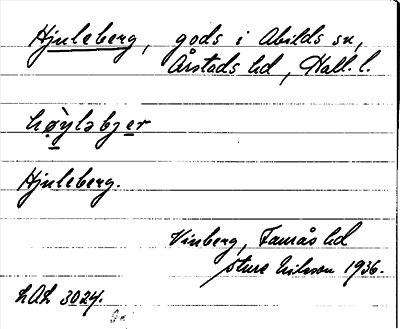 Hjuleberg, gods i Abilds sn,
Årstads hd, Hall. l.
hø̀yləbjer
Hjuleberg.
Vinberg, Faurås hd
Sture Nilsson 1936.
LAL 3024.